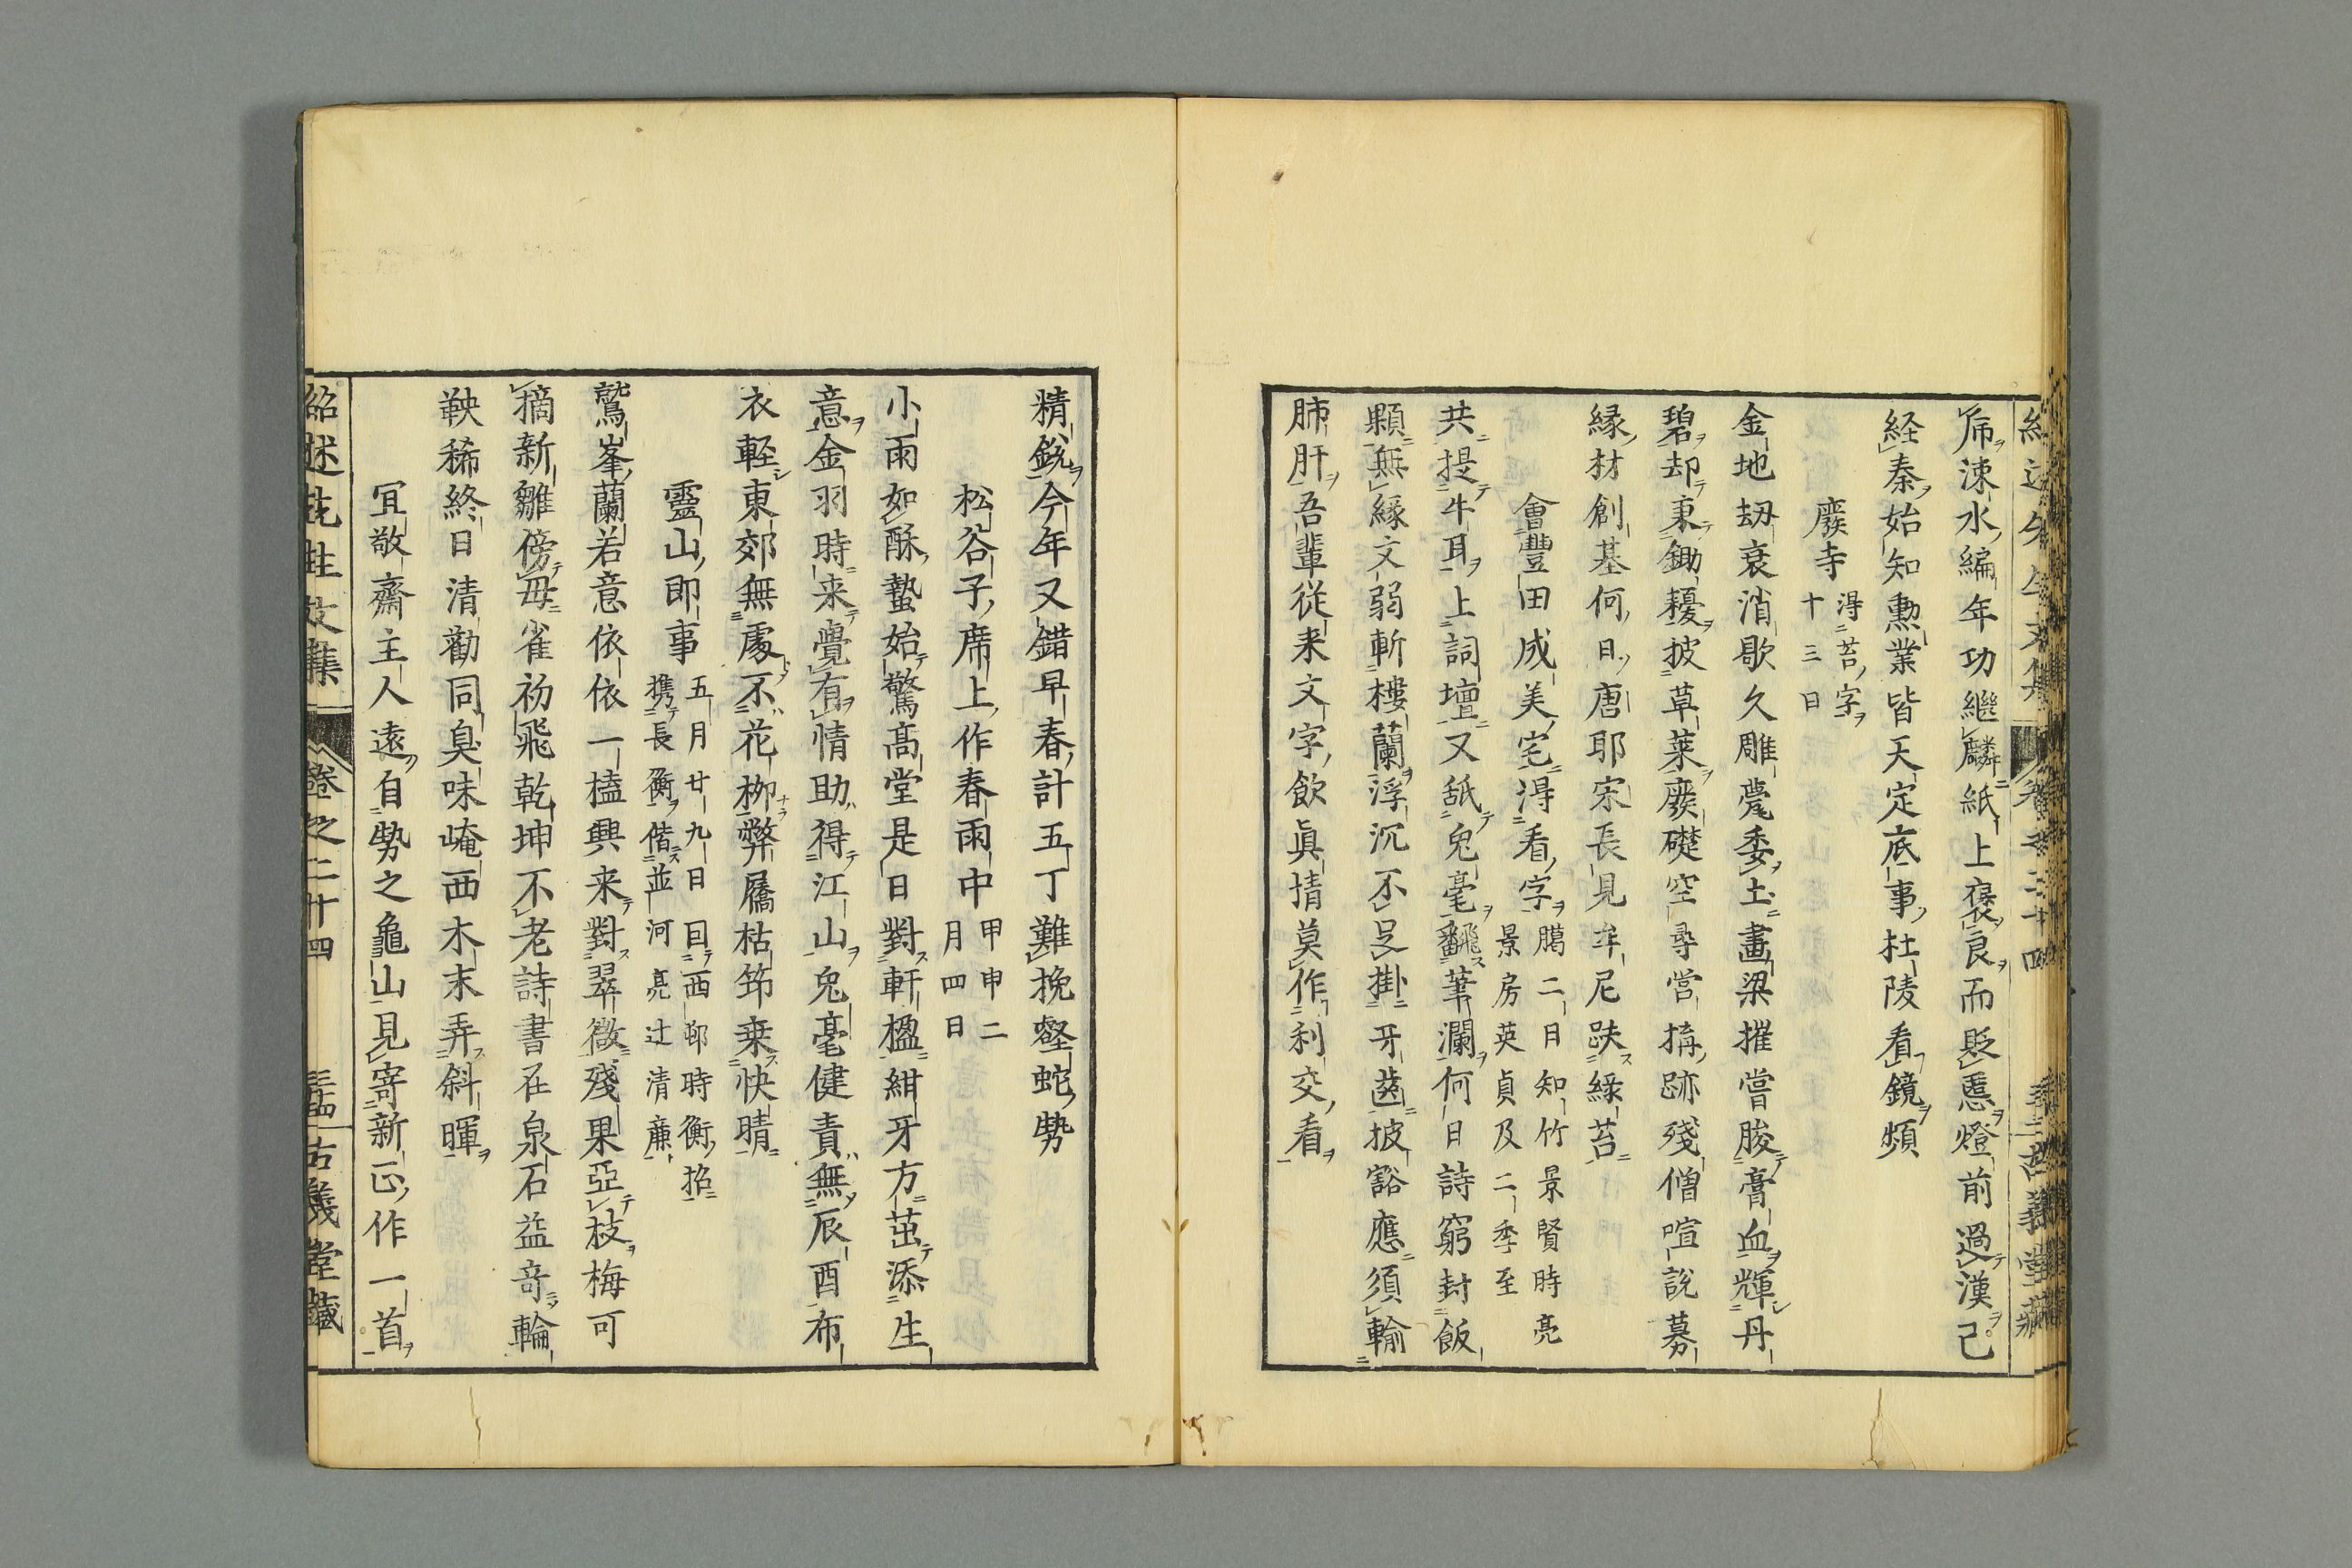 帋涑水編年功繼麟紙上褒良而貶慝燈前過漢已
経秦始知勲業皆天定底事杜陵看鏡頻
廢寺
得苔字
十三日
金地劫衰消歇久雕甍委土畫梁摧嘗朘膏血輝丹
碧却秉鋤耰披草萊廢礎空尋営搆跡殘僧喧説募
縁材創基何日唐耶宋長見牟尼趺緑苔
會豐田成美宅得看字
臈二日知竹景賢時亮
景房英貞及二季至
共提牛耳上詞壇又舐兔毫飜筆瀾何日詩窮封飯
顆無縁文弱斬樓蘭浮沉不足掛牙歯披豁應須輸
肺肝吾輩従来文字飲眞情莫作利交看
精鋭今年又錯早春計五丁難挽壑蛇勢
松谷子席上作春雨中
甲申二
月四日
小雨如酥蟄始驚高堂是日對軒楹紺牙方茁添生
意金羽時来覺有情助得江山兔毫健責無辰酉布
衣軽東郊無處不花栁弊屩枯笻乗快晴
靈山即事
五月廿九日囙西邨時衡招
携長衡偕並河亮辻清亷
鷲峯蘭若意依依一榼興来對翠微殘果亞枝梅可
摘新雛傍母雀初飛乾坤不老詩書在泉石益奇輪
鞅稀終日清勸同臭味崦西木末弄斜暉
冝敬齋主人遠自勢之龜山見寄新正作一首
紹述先生文集
卷之二十四
古義堂藏